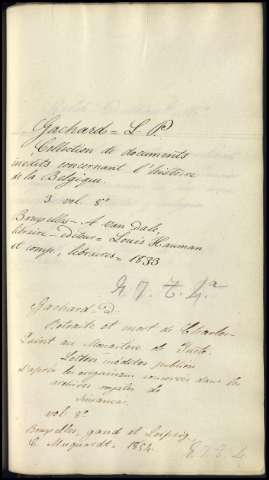 Gachard = L. P.
Collection de documents
inédits concernant l'histoire
de la Belgique.
3 vol. 8°
Bruxelles = A Van Dale,
libraire = éditeur = Louis Hauman
et comp., libraires = 1833
Gachard =
Retraite et mort de Charles-
Quint au Monastère de Yuste.
Lettres inédites publiées
d'après les originaux conservés dans les
archives royales de
Simancas.
vol 8°
Bruxelles, gand et Leipzig,
C. Muquardt = 1854.